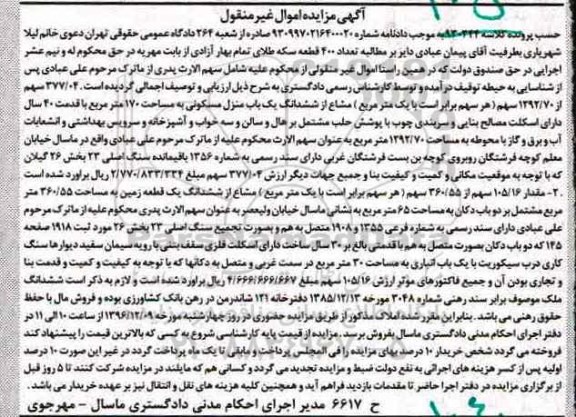 آگهی مزایده اموال غیر منقول
حسب پرونده کلاسه ۸۳۰۳۴۴ به موجب دادنامه شماره ۹۳۰۹۹۷۰۲۱۶۴۰۰۰۲۰ صادره از شعبه ۲۶۴ دادگاه عمومی حقوقی تهران دعوی خانم لیلا
شهریاری بطرفیت آقای پیمان عبادی دایر بر مطالبه تعداد ۴۰۰ قطعه سکه طلای تمام بهار آزادی از بابت مهریه در حق محکوم له و نیم عشر
اجرایی در حق صندوق دولت که در همین راستا اموال غیر منقولی از محکوم علیه شامل سهم الارث پدری از ماترک مرحوم علی عبادی پس
از شناسایی به حیطه توقیف در آمده و توسط کارشناس رسمی دادگستری به شرح ذیل ارزیابی و توصیف اجمالی گردیده است. ۳۷۷/۰۴ سهم
از ۱۲۹۲/۷۰ سهم (هر سهم برابر است با یک متر مربع) مشاع از ششدانگ یک باب منزل مسکونی به مساحت ۱۷۰ متر مربع با قدمت ۴۰ سال
دارای اسکلت مصالح بنایی و سربندی چوب با پوشش حلب مشتمل بر هال و سالن و سه خواب و آشپزخانه و سرویس بهداشتی و انشعابات
آب و برق و گاز با محوطه به مساحت ۱۲۹۲/۷۰ متر مربع به عنوان سهم الارث محکوم علیه از ماترک مرحوم علی عبادی واقع در ماسال خیابان
معلم کوچه فرشتگان روبروی کوچه بن بست فرشتگان غربی دارای سند رسمی به شماره ۱۳۵۶ باقیمانده سنگ اصلی ۲۳ بخش ۲۶ گیلان
که با توجه به موقعیت مکانی و کمیت و کیفیت بنا و جمیع جهات دیگر ارزش ۳۷۷/۰۴ سهم مبلغ ۲/۷۷۰/۸۳۳/۳۳۴ ریال برآورد شده است
۲ـ مقدار ۱۰۵/۱۶ سهم از ۳۶۰/۵۵ سهم (هر سهم برابر است با یک متر مربع) مشاع از ششدانگ یک قطعه زمین به مساحت ۳۶۰/۵۵ متر
مربع مشتمل بر دو باب دکان به مساحت ۶۵ متر مربع به نشانی ماسال خیابان ولیعصر به عنوان سهم الارث پدری محکوم علیه از ماترک مرحوم
علی عبادی دارای سند رسمی به شماره فرعی ۱۳۵۵ و ۱۹۰۸ متصل به هم و بصورت تجمیع سنگ اصلی ۲۳ بخش ۲۶ مورد ثبت ۱۹۱۸ صفحه
۱۴۵ که دو باب دکان بصورت متصل به هم با قدمتی بالغ بر ۳۰ سال ساخت دارای اسکلت فلزی سقف بتنی با رویه سیمان سفید دیوارها سنگ
کاری درب سیکوریت با یک باب انباری به مساحت ۳۰ متر مربع در سمت غربی و متصل به دکانها که با توجه به کیفیت و کمیت و قدمت بنا
و تجاری بودن آن و جمیع فاکتورهای موثر ارزش ۱۰۵/۱۶ سهم مبلغ ۴/۶۶۶/۶۶۶/۶۶۷ ریال برآورد شده است و لازم به ذکر است ششدانگ
ملک موصوف برابر سند رهنی شماره ۳۰۴۸ مورخه ۱۳۸۵/۱۲/۱۳ دفترخانه ۱۲۱ شاندرمن در رهن بانک کشاورزی بوده و فروش مال با حفظ
حقوق رهنی می باشد. بنابراین مقرر شده املاک مذکور از طریق مزایده حضوری در روز چهارشنبه مورخه ۱۳۹۶/۱۲/۰۹ از ساعت ۱۰ الی ۱۱ در
دفتر اجرای احکام مدنی دادگستری ماسال بفروش برسد. مزایده از قیمت پایه کارشناسی شروع به کسی که بالاترین قیمت را پیشنهاد کند
فروخته می گردد شخص خریدار ۱۰ درصد بهای مزایده را فی المجلس پرداخت و مابقی تا یک ماه پرداخت گردد در غیر این صورت ۱۰ درصد
اولیه پس از کسر هزینه های اجرائی به نفع دولت ضبط و مزایده تجدید می گردد و کسانی هم که مایلند در مزایده شرکت کنند تا ۵ روز قبل
از برگزاری مزایده در دفتر اجرا حاضر تا مقدمات بازدید فراهم آید و همچنین کلیه هزینه های نقل و انتقال نیز بر عهده خریدار می باشد.
ح ۶۶۱۷ مدیر اجرای احکام مدنی دادگستری ماسال - مهرجوی